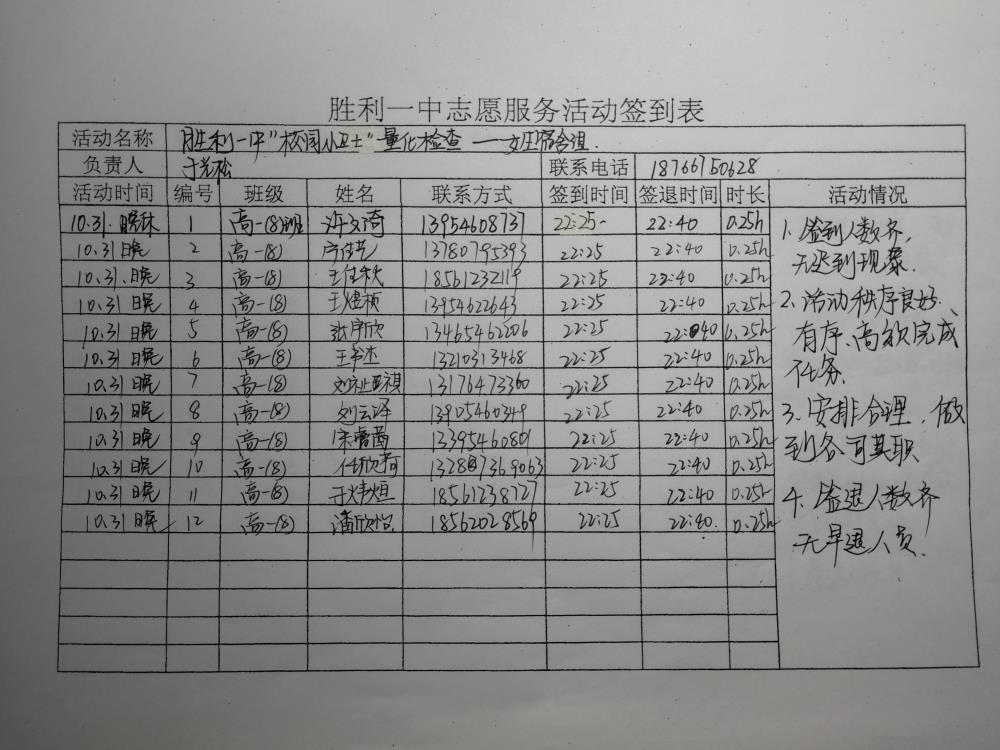 胜利一中志愿服务活动签到表
活动名称 胜利一中"校园小卫士"量化检查——女生宿舍组
负责人 于光松 联系电话 18766750628
活动时间 编号 班级 姓名 联系方式 签到时间 签退时间 时长 活动情况
10.31.晚休 1 高一(8)班 许文琦 13954608737 22:25 22:40 0.25h
10.31晚 2 高一(8) 13780795393 22:25 22:40 0.25h
10.31.晚 3 高一(8) 王佳秋 18561232119 22:25 22:40 0.25h
10.31晚 4 高一(8) 王煜桢 13954622643 22:25 22:40 0.25h
10.31晚 5 高一(8) 张序欣 13465462206 22:25 22:40 0.25h
10.31晚 6 高一(8) 王书杰 13210313468 22:25 22:40 0.25h
10.31晚 7 高一(8) 13176473360 22:25 22:40 0.25h
10.31晚 8 高一(8) 刘云泽 13905460349 22:25 22:40 0.25h
10.31晚 9 高一(8) 宋睿茜 13395460801 22:25 22:40 0.25h
10.31晚 10 高一(8) 任欣荷 13287369063 22:25 22:40 0.25h
10.31晚 11 高一(8) 于炜烜 18561238727 22:25 22:40 0.25h
10.31晚 12 高一(8) 潘欣怡 18562028569 22:25 22:40 0.25h
1. 签到人数齐,
无迟到现象.
2、活动秩序良好、
有序、高效完成
任务.
3、安排合理,做
到各司其职
4、签退人数齐
无早退人员.